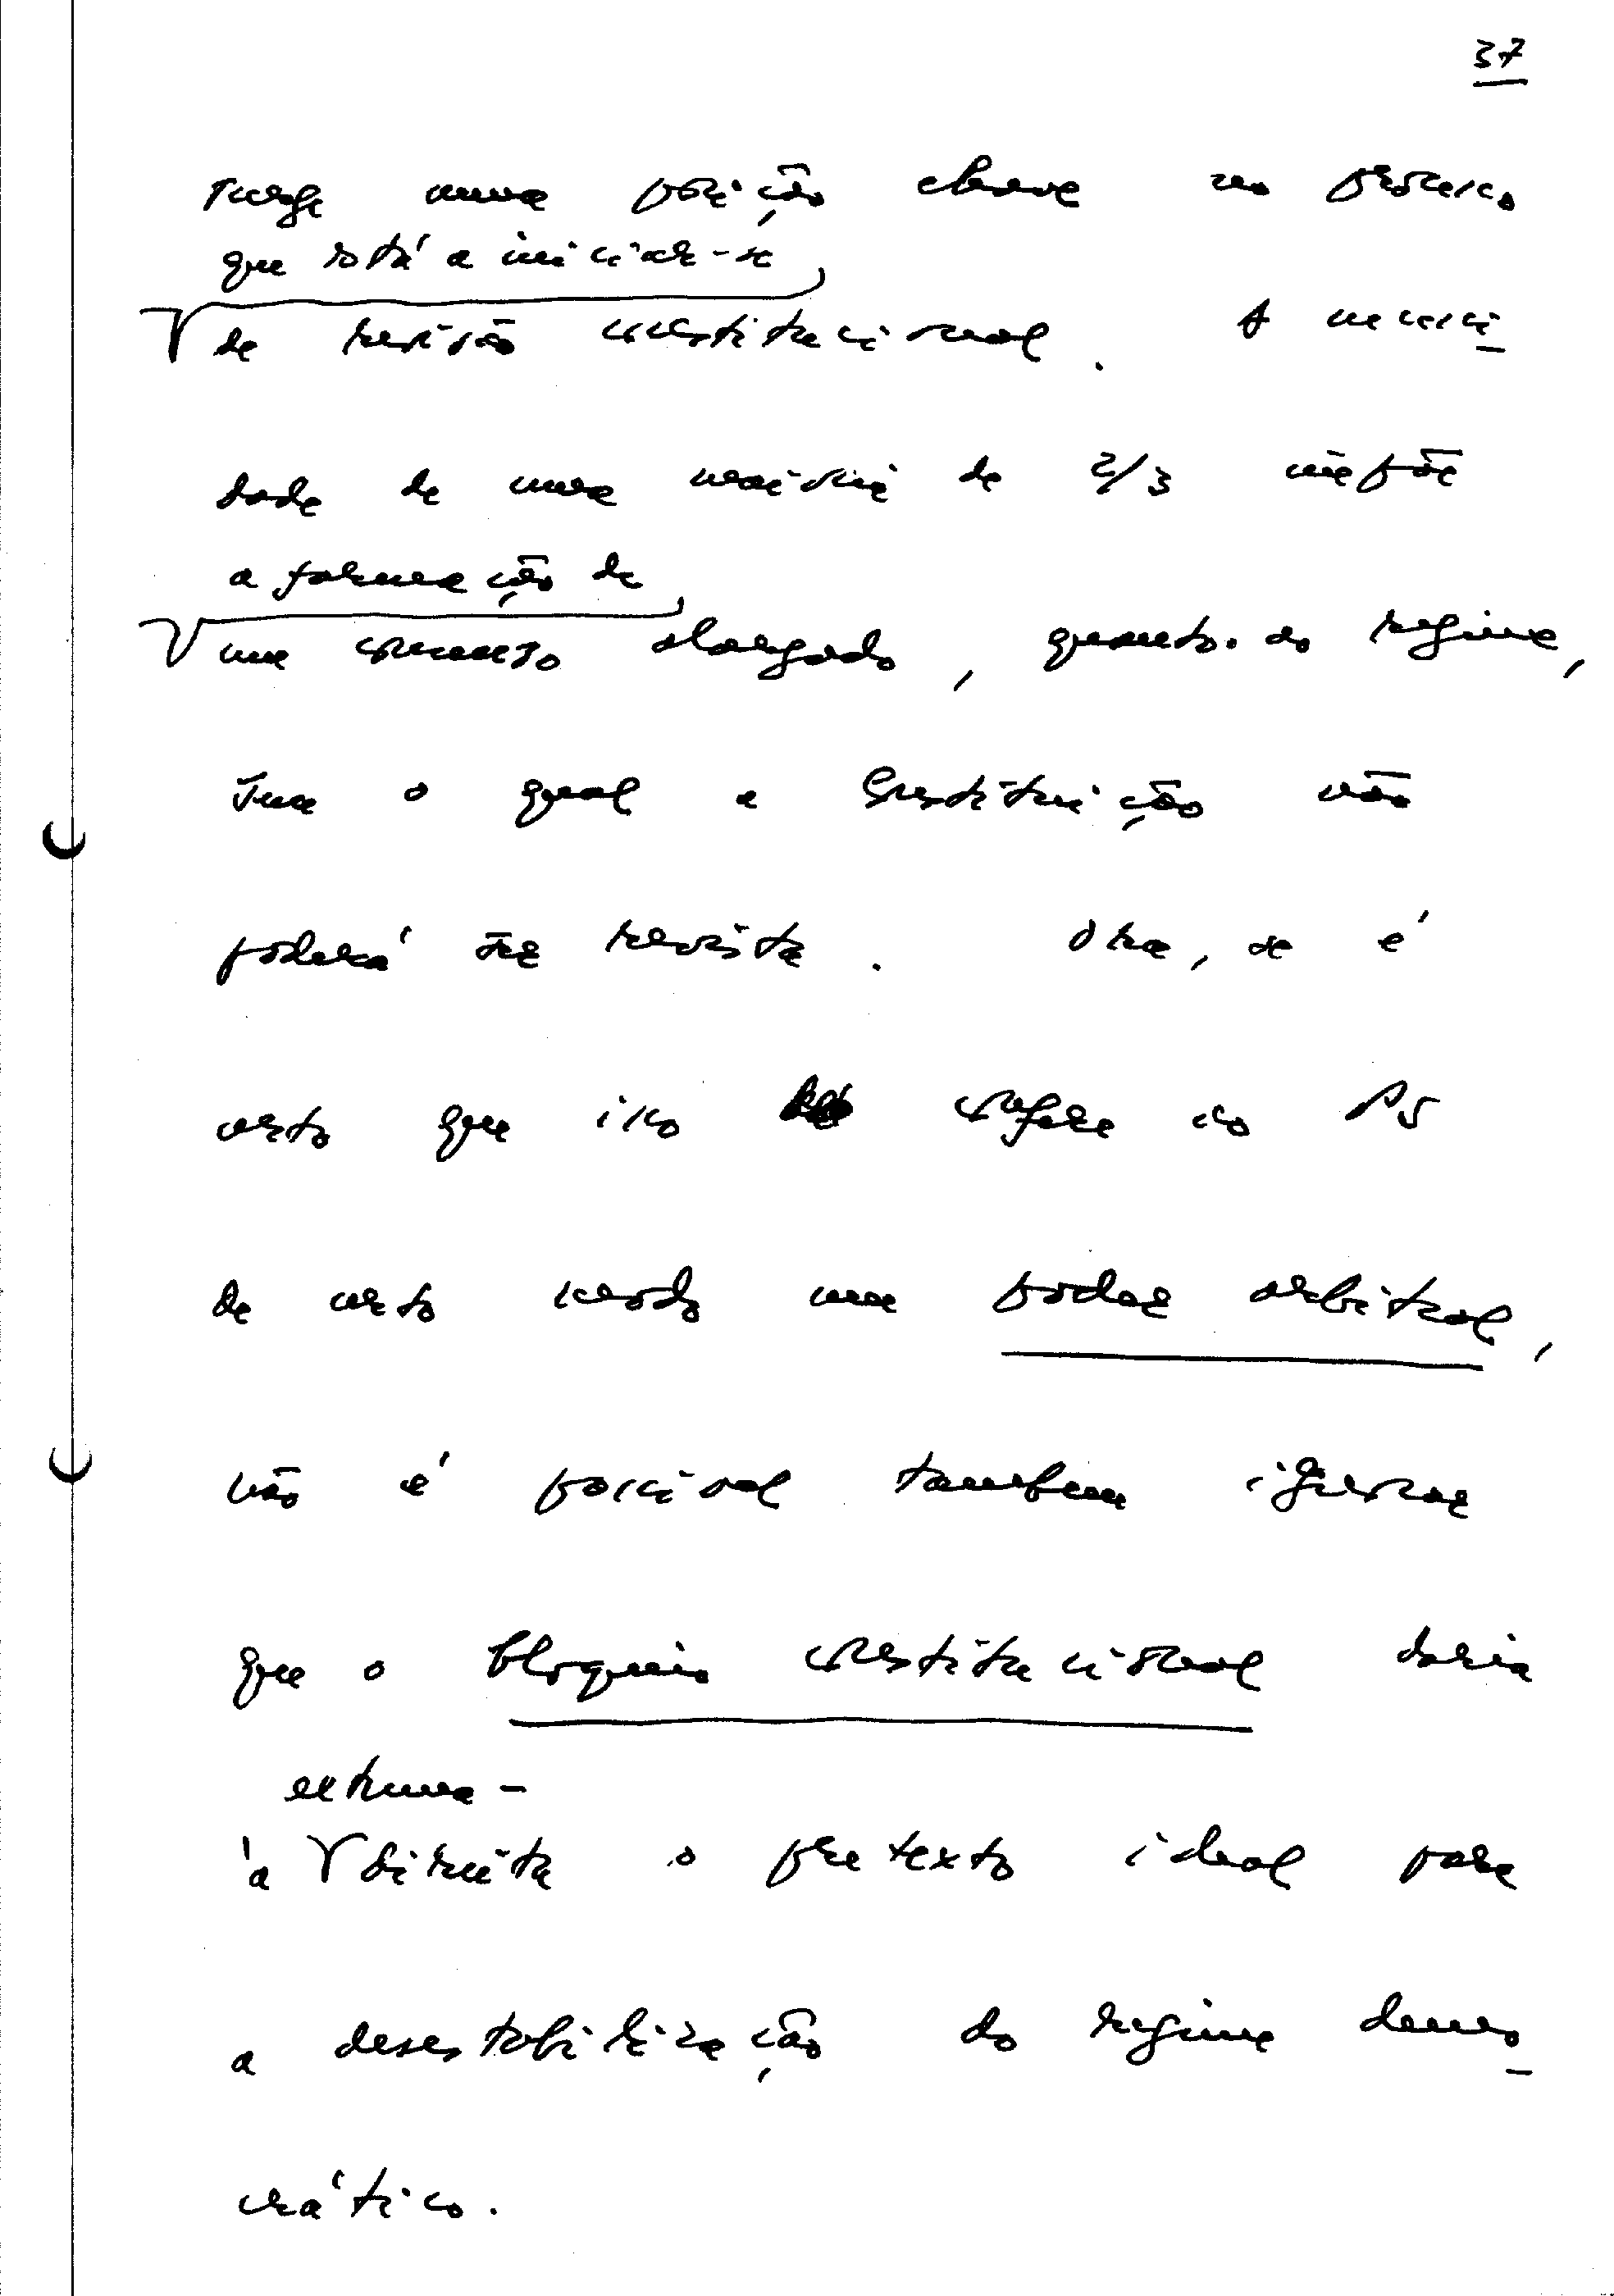 37
surge numa posição chave no processo
que está a iniciar-se
de revisão constitucional. A necessi-
dade de uma maioria de 2/3 impõe
a formação de
um consenso alargado, quanto ao regime,
sem o qual a Constituição não
poderá ser revista. Ora, se é
certo que isso confere ao PS
de certo modo um poder arbitral,
não é possível também ignorar
que o bloqueio constitucional daria
extrema-
à direita o pretexto ideal para
a desestabilização do regime demo-
crático.